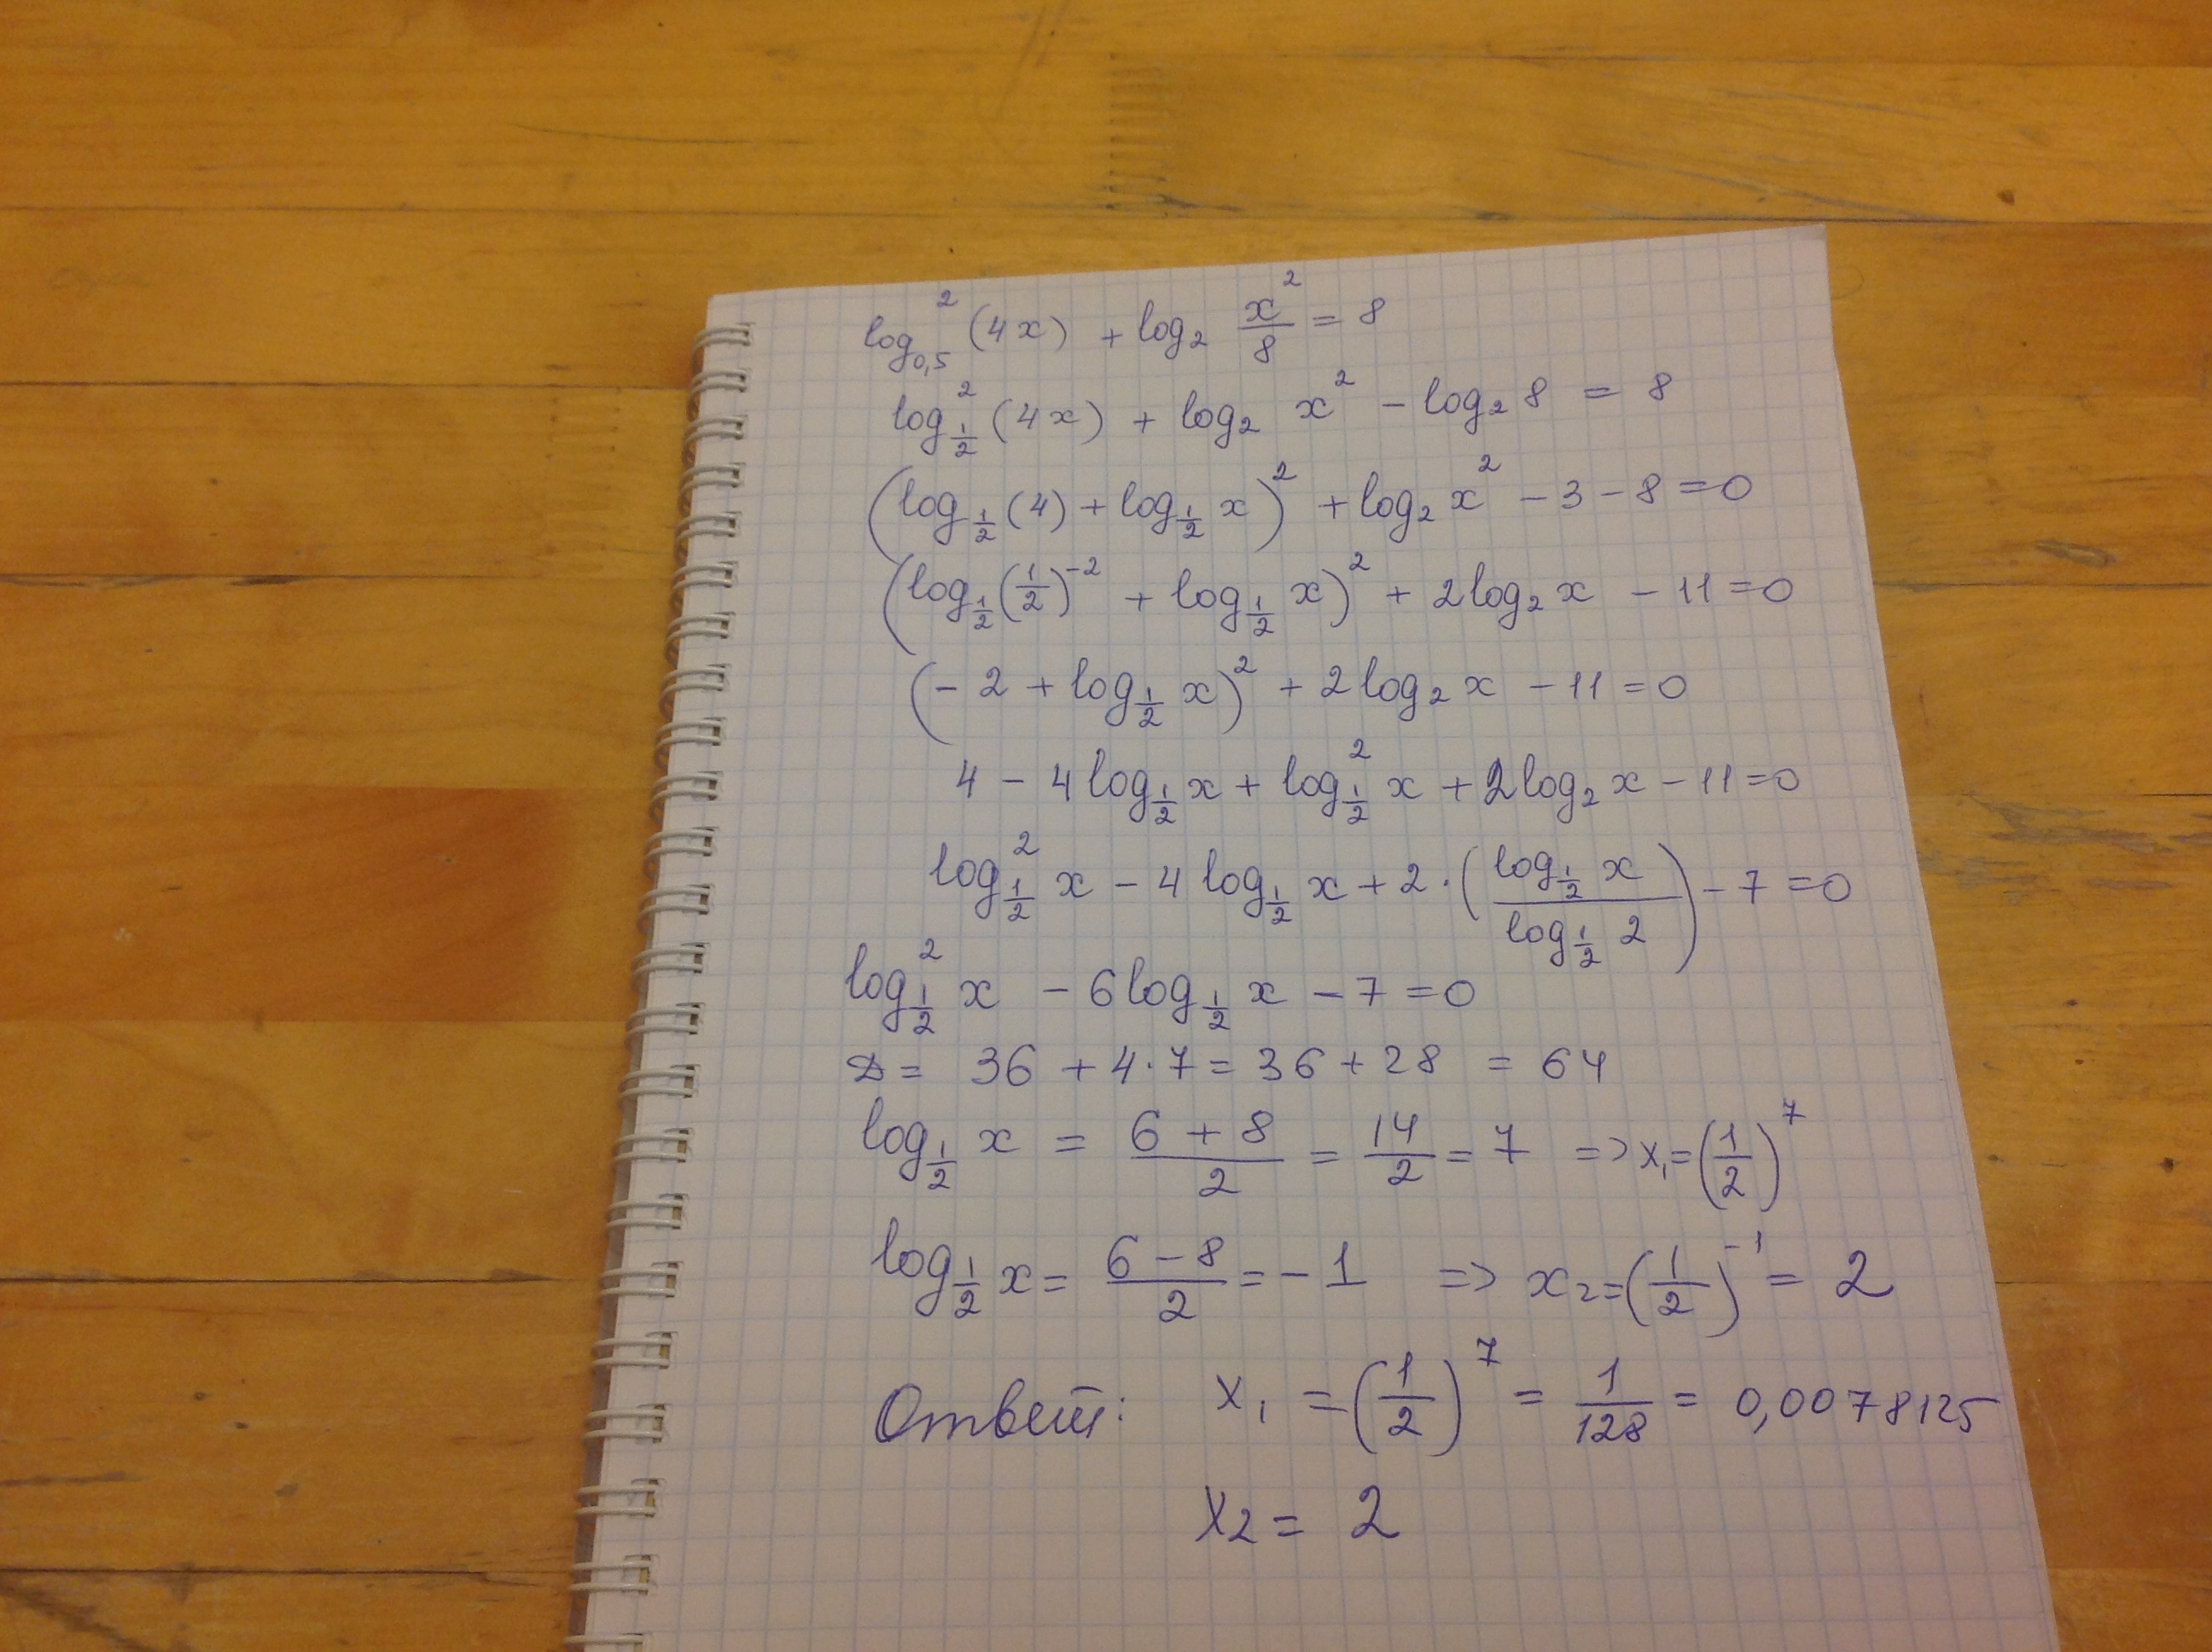 log²₀,₅ (4x) + log₂ x²/8 = 8
log²_{1/2} (4x) + log₂ x² - log₂ 8 = 8
(log_{1/2} (4) + log_{1/2} x)² + log₂ x² - 3 - 8 = 0
(log_{1/2} (1/2)⁻² + log_{1/2} x)² + 2 log₂ x - 11 = 0
(- 2 + log_{1/2} x)² + 2 log₂ x - 11 = 0
4 - 4 log_{1/2} x + log²_{1/2} x + 2 log₂ x - 11 = 0
log²_{1/2} x - 4 log_{1/2} x + 2 · (log_{1/2} x / log_{1/2} 2) - 7 = 0
log²_{1/2} x - 6 log_{1/2} x - 7 = 0
D = 36 + 4 · 7 = 36 + 28 = 64
log_{1/2} x = (6 + 8)/2 = 14/2 = 7 => x₁ = (1/2)⁷
log_{1/2} x = (6 - 8)/2 = - 1 => x₂ = (1/2)⁻¹ = 2
Ответ: x₁ = (1/2)⁷ = 1/128 = 0,0078125
x₂ = 2